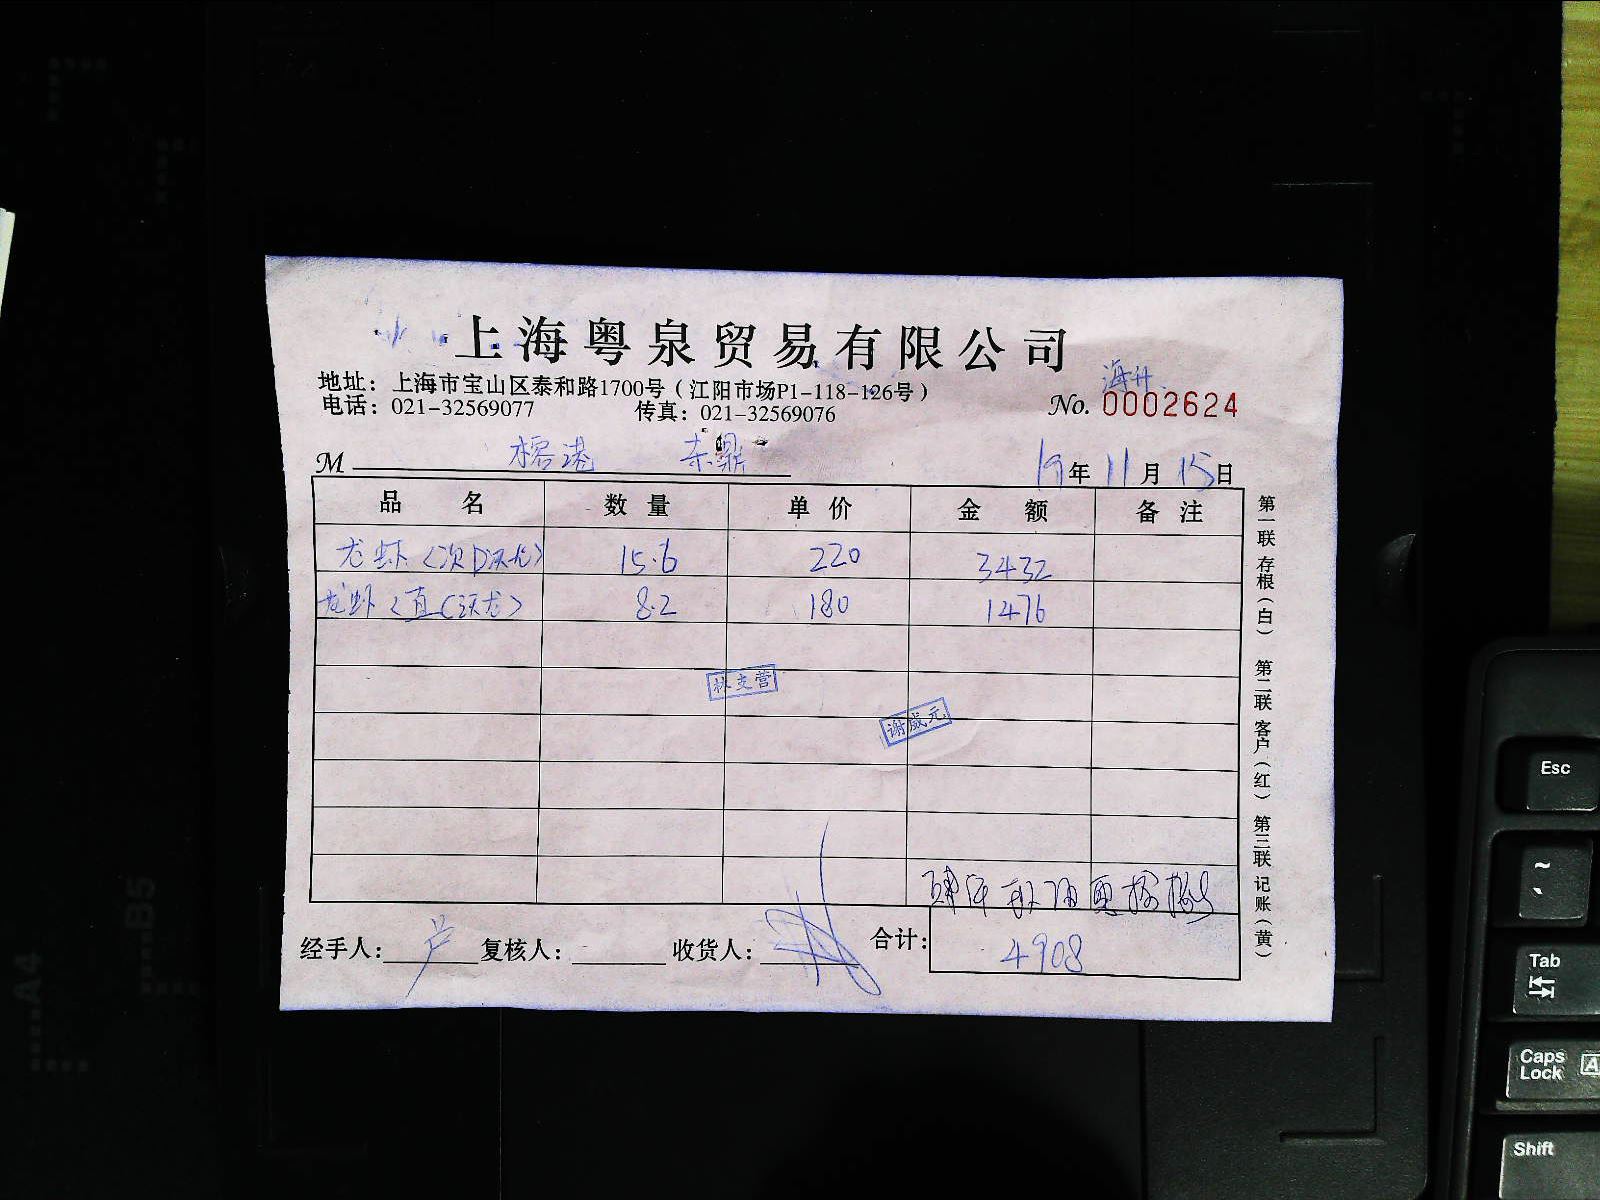 上海粤泉贸易有限公司
地址：上海市宝山区泰和路1700号（江阳市场P1-118-126号）
海升
电话：021-32569077 传真：021-32569076 No. 0002624
M 榕港 19年11月15日
品名 数量 单价 金额 备注
龙虾 15.6 220 3432
龙虾 8.2 180 1476
林支营
谢咸元
经手人：卢 复核人： 收货人： 合计：4908
第一联 存根（白） 第二联 客户（红） 第三联 记账（黄）
Esc
~
Tab
Caps Lock
A
Shift
B5
A4